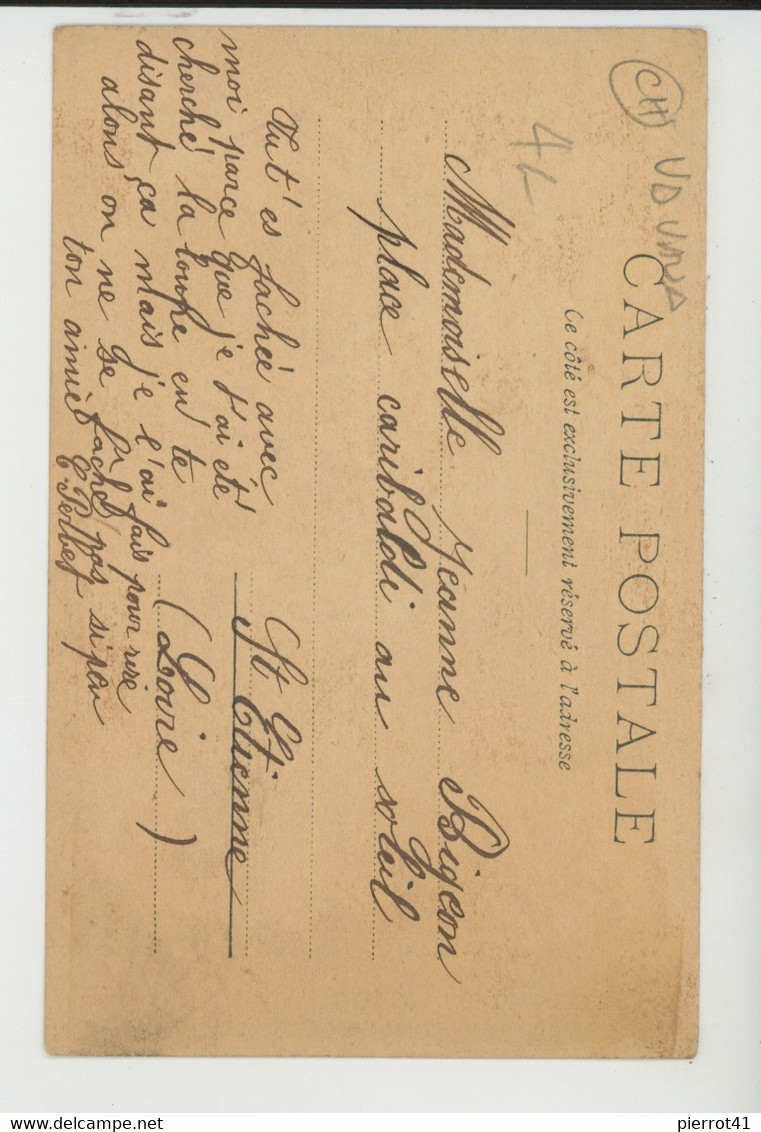 CARTE POSTALE
Ce côté est exclusivement réservé à l'adresse
CH
4L
Mademoiselle Jeanne Bigeon
place caribaldi au soleil
St Etienne
(Loire)
tu t'es fachée avec
moi parce que je t'ai été
cherché la loupe en te
disant ça mais je l'ai fais pour rire
alons on ne se fache pas si peu
ton amie
pierrot41